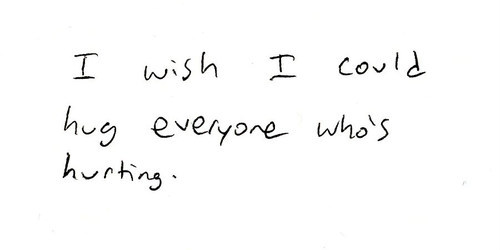 I wish I could
hug everyone who's
hurting.